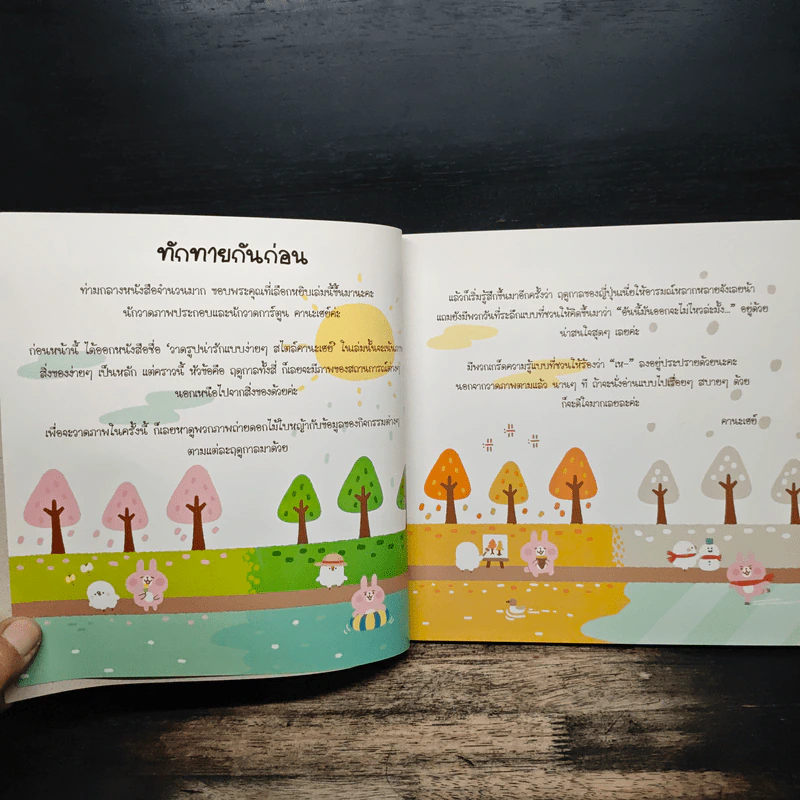 ทักทายกันก่อน
ท่ามกลางหนังสือจำนวนมาก ขอบพระคุณที่เลือกหยิบเล่มนี้ขึ้นมานะคะ
นักวาดภาพประกอบและนักวาดการ์ตูน คานะเฮย์ค่ะ
ก่อนหน้านี้ ได้ออกหนังสือชื่อ ‘วาดรูปน่ารักแบบง่ายๆ สไตล์คานะเฮย์’ ในเล่มนั้นจะเน้น
สิ่งของง่ายๆ เป็นหลัก แต่คราวนี้ หัวข้อคือ ฤดูกาลทั้งสี่ ก็เลยจะมีภาพของสถานการณ์ต่างๆ
นอกเหนือไปจากสิ่งของด้วยค่ะ
เพื่อจะวาดภาพในครั้งนี้ ก็เลยหาดูพวกภาพถ่ายดอกไม้ใบหญ้ากับข้อมูลของกิจกรรมต่างๆ
ตามแต่ละฤดูกาลมาด้วย
แล้วก็เริ่มรู้สึกขึ้นมาอีกครั้งว่า ฤดูกาลของญี่ปุ่นเนี่ยให้อารมณ์หลากหลายจังเลยน้า
แถมยังมีพวกวันที่ระลึกแบบที่ชวนให้คิดขึ้นมาว่า “อันนี้มันออกจะไม่ไหวล่ะมั้ง...” อยู่ด้วย
น่าสนใจสุดๆ เลยค่ะ
มีพวกเกร็ดความรู้แบบที่ชวนให้ร้องว่า “เห-” ลงอยู่ประปรายด้วยนะคะ
นอกจากวาดภาพตามแล้ว นานๆ ที ถ้าจะนั่งอ่านแบบไปเรื่อยๆ สบายๆ ด้วย
ก็จะดีใจมากเลยละค่ะ
คานะเฮย์